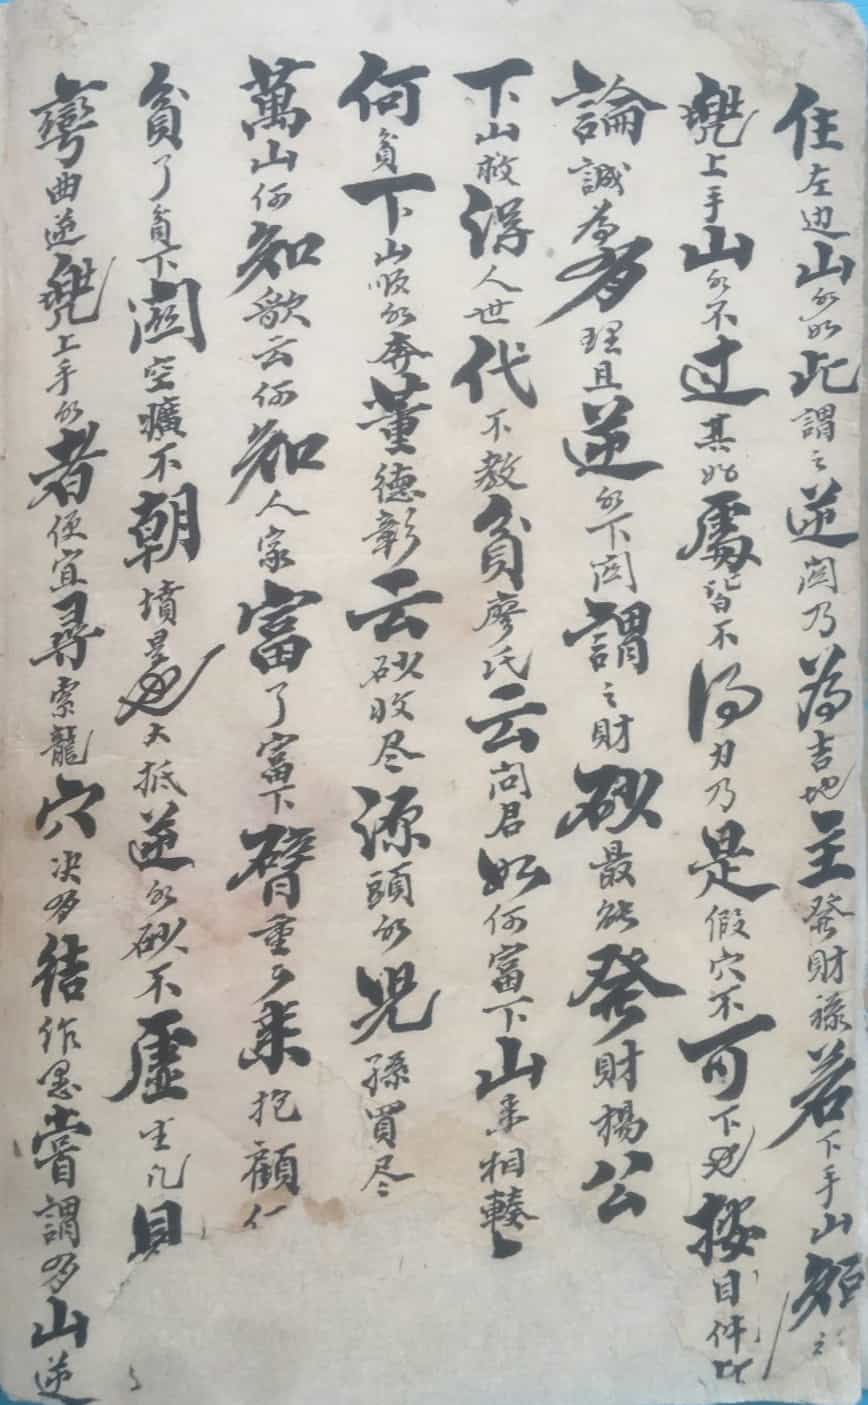 住左边山水如此謂之逆関乃為吉地主發財祿若下手山短之
兠上手山水不过其始處皆不得力乃是假穴不可下也按目件此
論誠為有理且逆水下関謂之財砂最能發財楊公
下山救得人世代不教貧廖氏云问君如何富下山来相輳
何貧下山順水奔董德彰云砂收尽源頭水兒孫買尽
萬山何知歌云何知人家富了富下臂重乡来抱顧何
貧了貧下関空曠不朝墳是也大抵逆水砂不虛生凡見
彎曲逆兠上手水者便宜尋索龍穴决多結作愚嘗謂多山逆